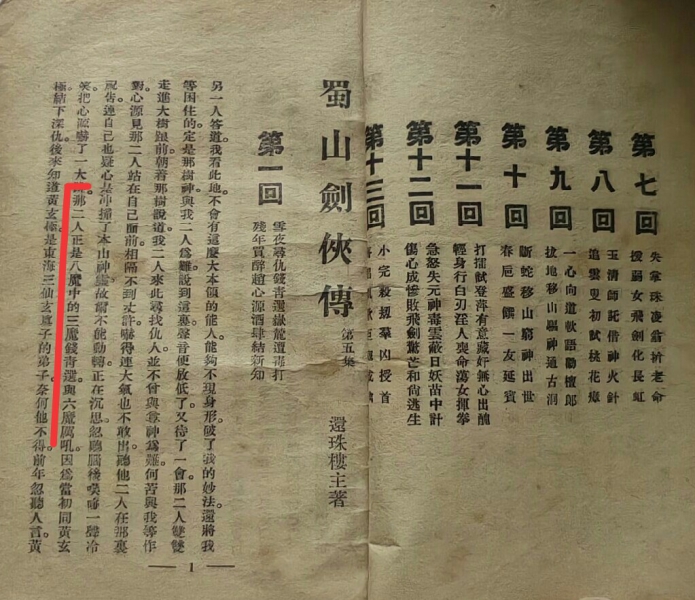 第七回
失掌珠凌翁拚老命
援弱女飛劍化長虹
第八回
玉清師託借神火針
追雲叟初試桃花瘴
第九回
一心向道軟語勸檀郎
拔地移山驅神通古洞
第十回
斷蛇移山窮神出世
春巵盛饌一友延賓
第十一回
打擂試登萍有意藏奸無心出醜
輕身行白刃淫人喪命蕩女揮拳
第十二回
急怒失元神毒雲蔽日妖苗中計
傷心成慘敗飛劍驚芒和尚逃生
第十三回
小完殺規羣凶授首
蜀山劍俠傳
第五集
還珠樓主著
第一回
雪夜尋仇錢青選嶽麓遭毒打
殘年買醉趙心源酒肆結新知
另一人答道。我看此地。不會有這麼大本領的能人。能夠不現身形。破了我的妙法。還將我
等困住的。定是那樹神。與我二人爲難。說到這裏。聲音便放低了。又待了一會。那二人雙雙
走進大樹跟前。朝着那樹說道。我二人來此尋找仇人。並不曾與尊神爲難。何苦與我等作
對。心源見那二人站在自己面前。相隔不到丈許。嚇得連大氣也不敢出。聽他二人在那裏
祝告。連自己也疑心是冲撞了本山神靈。故爾不能動轉。正在沉思。忽聽腦後噗哧一聲冷
笑。把心源嚇了一大跳。那二人正是八魔中的三魔錢青選。與六魔厲吼。因爲當初同黃玄
極結下深仇。後來知道黃玄極是東海三仙玄眞子的弟子。奈何他不得。前年忽聽人言。黃
1